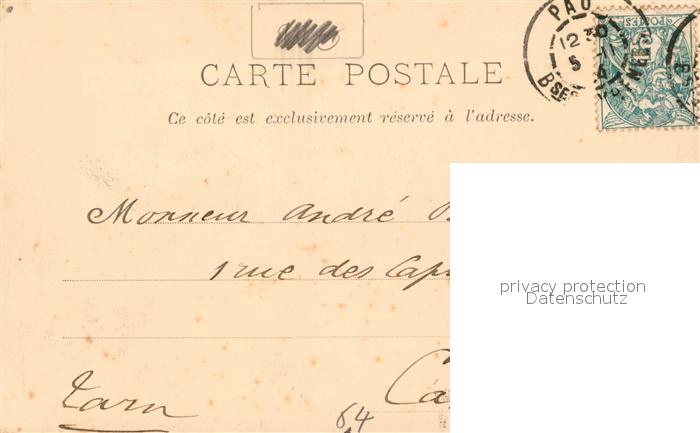 PAU
12 30
5
Bses
POSTES
CARTE POSTALE
Ce côté est exclusivement réservé à l'adresse.
Monsieur André
1 rue des Cap
privacy protection
Datenschutz
Ca
Tarn
64